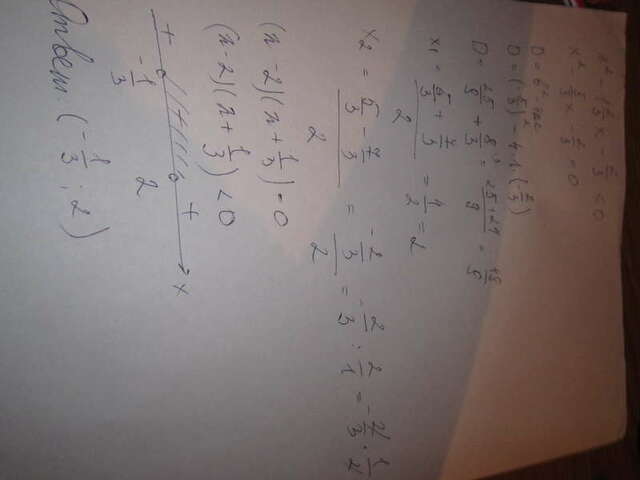 x² - 1 2/3 x - 2/3 < 0
x² - 5/3 x - 2/3 = 0
D = b² - 4ac
D = (-5/3)² - 4·1·(-2/3)
D = 25/9 + 8/3 = (25+24)/9 = 49/9
x₁ = (5/3 + 7/3)/2 = 4/2 = 2
x₂ = (5/3 - 7/3)/2 = (-2/3)/2 = -2/3 : 2/1 = -2/3 · 1/2
(x - 2)(x + 1/3) = 0
(x - 2)(x + 1/3) < 0
+ + x
-1/3 2
Ответ: (-1/3 ; 2)